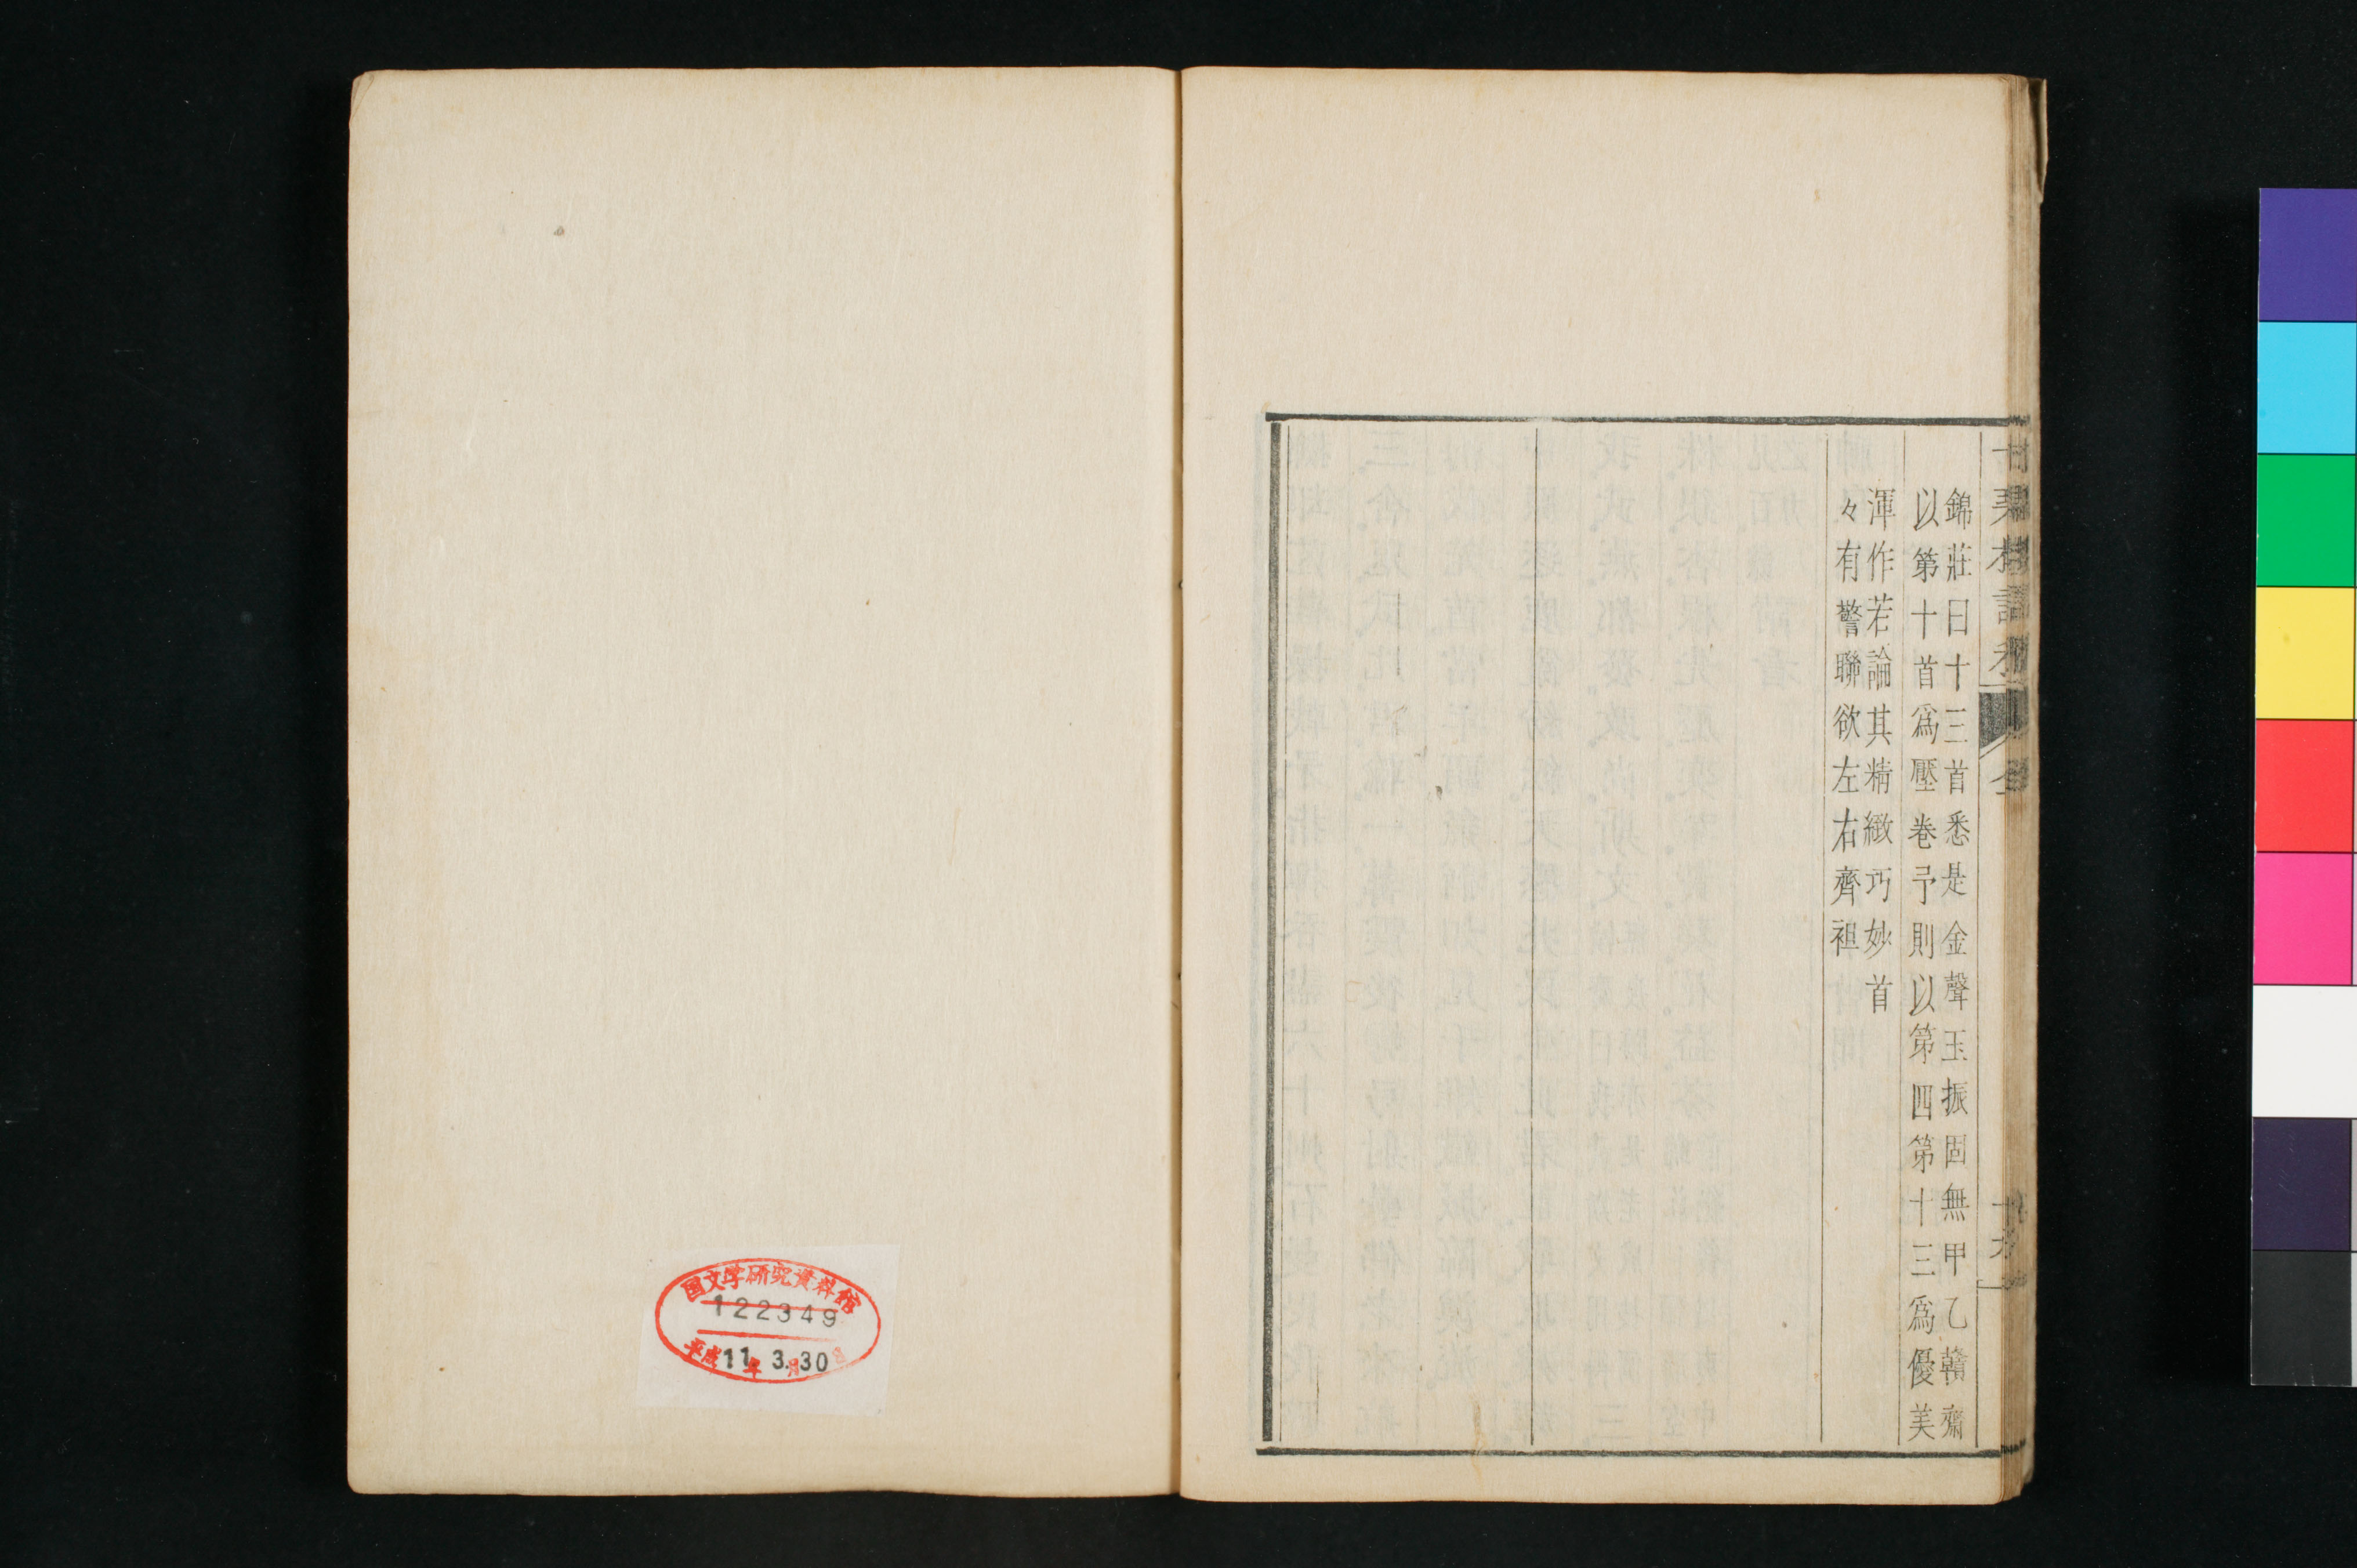 錦莊曰十三首悉是金聲玉振固無甲乙䪺齋
以第十首爲壓卷予則以第四第十三爲優美
渾作若論其精緻巧妙首
々有警聯欲左右齊袒
国文学研究資料館
122349
平成11年3月30日